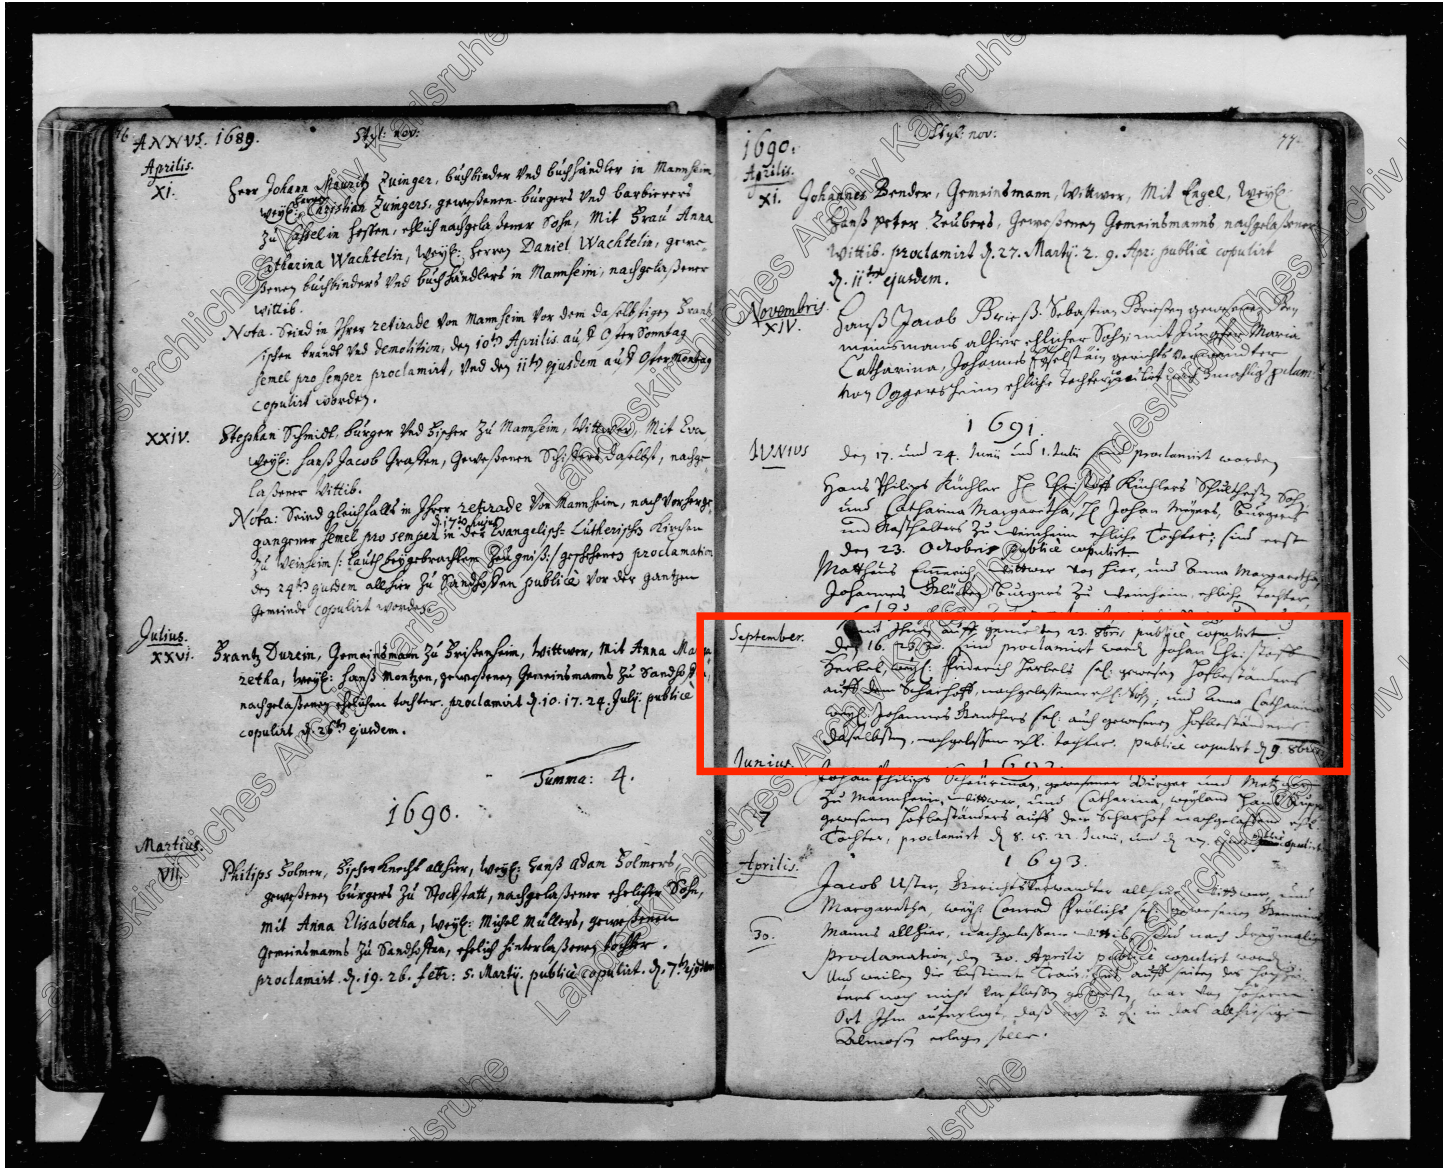 76
ANNVS. 1689.
Styl: nov:
Aprilis.
XI.
Herr Johann Mauritz Zuinger, buchbinder Vnd buchhändler in Mannheim,
weyl: Herrn Christian Zuingers, geweßenen bürgers Vnd barbierers
zu Cassel in Hessen, ehlich nachgelaßener Sohn, Mit Frau Anna
Catharina Wachtelin, Weyl: Herrn Daniel Wachtelin, gewe-
ßenen buchbinders Vnd buchhändlers in Mannheim, nachgelaßener
wittib.
Nota. Seind in Ihrer retirade Von Mannheim Vor dem daselbstigen Frantz
ösischen brandt Vnd demolition, den 10ten Aprilis auff Oster Sonntag
semel pro semper proclamirt, Vnd den 11ten ejusdem auff Oster Montag
copulirt worden.
XXIV.
Stephan Schmidt, bürger Vnd Fischer Zu Mannheim, Wittwer, Mit Eva,
Weyl: Hanß Jacob Graffen, Geweßenen Schiffers daselbst, nachge-
laßener Wittib.
Nota: Seind gleichfalls in Ihrer retirade Von Mannheim, nach Vorherge-
gangener semel pro semper in der Evangelisch-Lutherischen Kirchen
d. 17ten hujus
zu Weinheim /: laut beygebrachtem Zeugniß :/ geschehenen proclamation
den 24ten ejusdem allhier Zu Sandhoffen publicè Vor der gantzen
Gemeinde copulirt worden.
Julius.
XXVI.
Frantz Durein, Gemeinsmann Zu Frißenheim, Wittwer, Mit Anna Marga
retha, weyl: Hanß Montzen, geweßenen Gemeinsmanns Zu Sandhoffen,
nachgelaßenen ehlichen tochter. proclamirt d. 10. 17. 24. July. publicè
copulirt d. 26ten ejusdem.
Summa: 4.
1690.
Martius.
VII.
Philips Folmer, Fischer Knecht allhier, weyl: Hanß Adam Folmers,
geweßenen bürgers Zu Stockstatt, nachgelaßener ehelicher Sohn,
mit Anna Elisabetha, weyl: Michel Müllers, geweßenen
Gemeinsmanns Zu Sandhoffen, ehelich hinterlaßenen tochter.
proclamirt d. 19. 26. febr: 5. Martij. publicè copulirt. d. 7ten
77.
1690.
Styl: nov:
Aprilis.
XI.
Johannes Bender, Gemeinsmann, Wittwer, Mit Engel, Weyl:
Hanß peter Zeubers, Geweßenen Gemeinsmanns nachgelaßener
Wittib. proclamirt d. 27. Martij. 2. 9. Apr: publicè copulirt
d. 11ten ejusdem.
Novembris
XIV.
Hanß Jacob Brieß, Sebastian Brießen gewesenen Ge-
meinsmans alhier ehlicher Sohn mit Jungfer Maria
Catharina, Johannes gerichts Verwandter
von Oggersheim ehliche Tochter
1691.
IVNIVS
den 17. und 24. Junii und 1. Julii sind proclamirt worden
Hans Philips Küchler H. Christoff Küchlers Schultheisen Sohn
und Catharina Margaretha, H. Johan Meyers, burgers
und Gasthalters Zu Weinheim ehliche Tochter; sind erst
den 23. Octobris publicè copulirt
Matthäus Emmerich, Wittwer von hier, und Anna Margaretha,
Johannes burgers Zu Weinheim, ehliche tochter,
23. 8bris publicè copulirt
September.
den 16. 23. 30. sind proclamirt word. Johan Christoff
Herbel, weyl. Friderich Herbels sel. gewesen Hofbeständers
auff dem Scharhoff, nachgelassener ehl. Sohn, und Anna Catharina
weyl. Johannes Kanthers sel. auch gewesenen Hofbeständers
daselbsten, nachgelassene ehl. tochter. publicè copulirt d. 9. 8bris
1692.
Junius.
27
Johan Philips Scheürman, gewesener Burger und Metzger
Zu Mannheim, wittwer, und Catharina, weyland Hans
gewesenen Hofbeständers auff dem Scharhof nachgelassene ehl.
Tochter, proclamirt d. 8. 15. 22. Junii, und d. 27. copulirt.
1693.
Aprilis.
30.
Jacob Uster, Gerichtsverwandter allhier, Wittwer, und
Margaretha, weyl. Conrad Frölichs sel. gewesenen Gemeins
Manns allhier, nachgelassene wittib, sind nach dreymaliger
proclamation, den 30. Aprilis publicè copulirt worden.
Und weilen die bestimte Traur Zeit auff seiten des Hochzei-
ters noch nicht verflossen gewesen, war von höherem
Ort Ihm auferlegt, daß er 3. fl. in das allhiesige
Almosen erlegen solle.
Landeskirchliches Archiv Karlsruhe